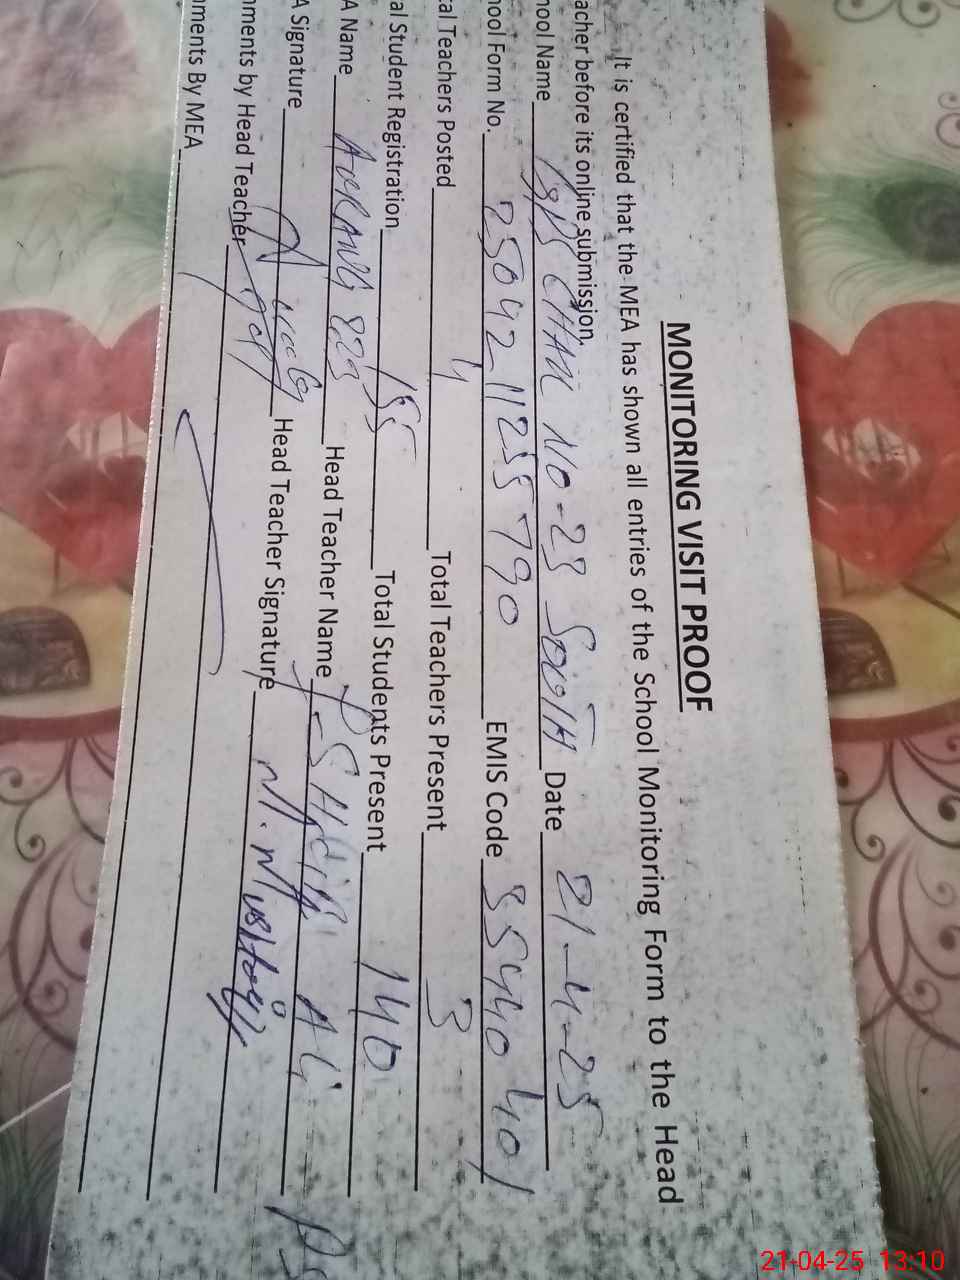 MONITORING VISIT PROOF
It is certified that the MEA has shown all entries of the School Monitoring Form to the Head
acher before its online submission.
ool Name CHAK NO-23 SOUTH Date 21-4-25
ool Form No. 250421125790 EMIS Code 38540401
al Teachers Posted 4 Total Teachers Present 3
al Student Registration 155 Total Students Present 140
A Name AURANG 829 Head Teacher Name
A Signature Head Teacher Signature
ments by Head Teacher
ments By MEA
21-04-25 13:10